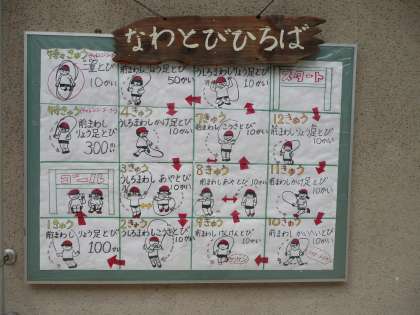 なわとびひろば
二重とび
10かい
前まわし りょう足とび
50かい
うしろまわし りょう足とび
10かい
スタート
前まわし りょう足とび
300かい
2きゅう
うしろまわし かけ足とび
10かい
7きゅう
前まわし こうさとび
10かい
12きゅう
前まわし りょう足とび
10かい
ゴール
3きゅう
うしろまわし あやとび
10かい
8きゅう
前まわし あやとび
10かい
11きゅう
前まわし かけ足とび
10かい
1きゅう
前まわし りょう足とび
100かい
うしろまわし こうさとび
10かい
9きゅう
前まわし けんけんとび
10かい
10きゅう
10かい